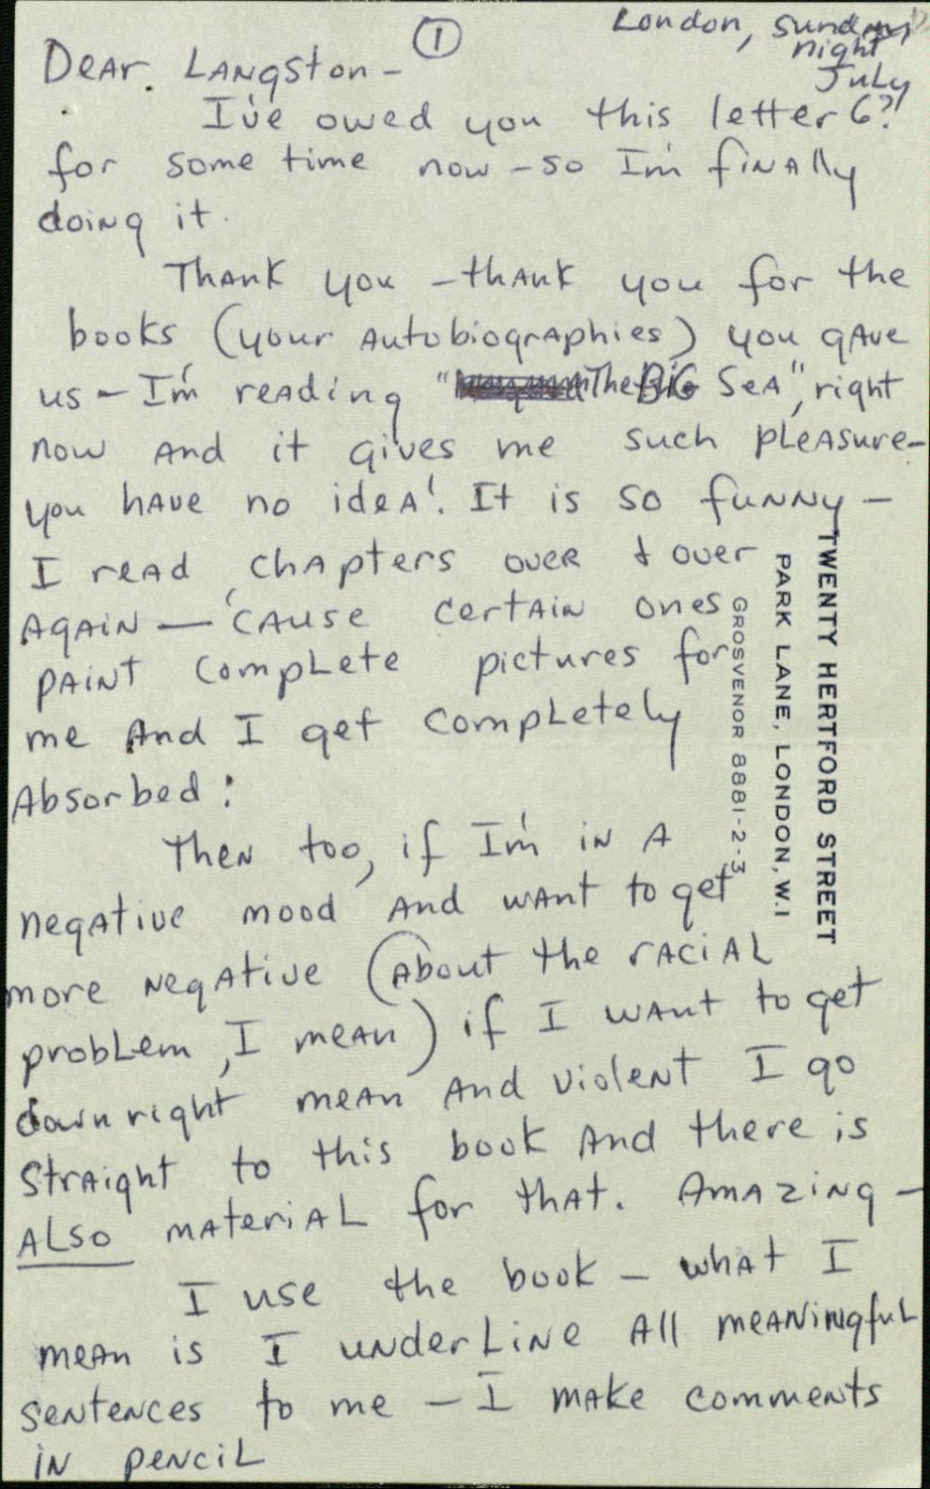 ①
London, Sunday
night
July
6?
Dear Langston –
I've owed you this letter
for some time now – so I'm finally
doing it.
Thank you – thank you for the
books (your autobiographies) you gave
us – I'm reading "The Big Sea", right
now and it gives me such pleasure –
you have no idea! It is so funny –
I read chapters over & over
again — 'cause certain ones
paint complete pictures for
me and I get completely
absorbed:
Then too, if I'm in a
negative mood and want to get
more negative (about the racial
problem, I mean) if I want to get
downright mean and violent I go
straight to this book and there is
also material for that. Amazing –
I use the book – what I
mean is I underline all meaningful
sentences to me – I make comments
in pencil
TWENTY HERTFORD STREET
PARK LANE, LONDON, W.1
GROSVENOR 8881-2-3